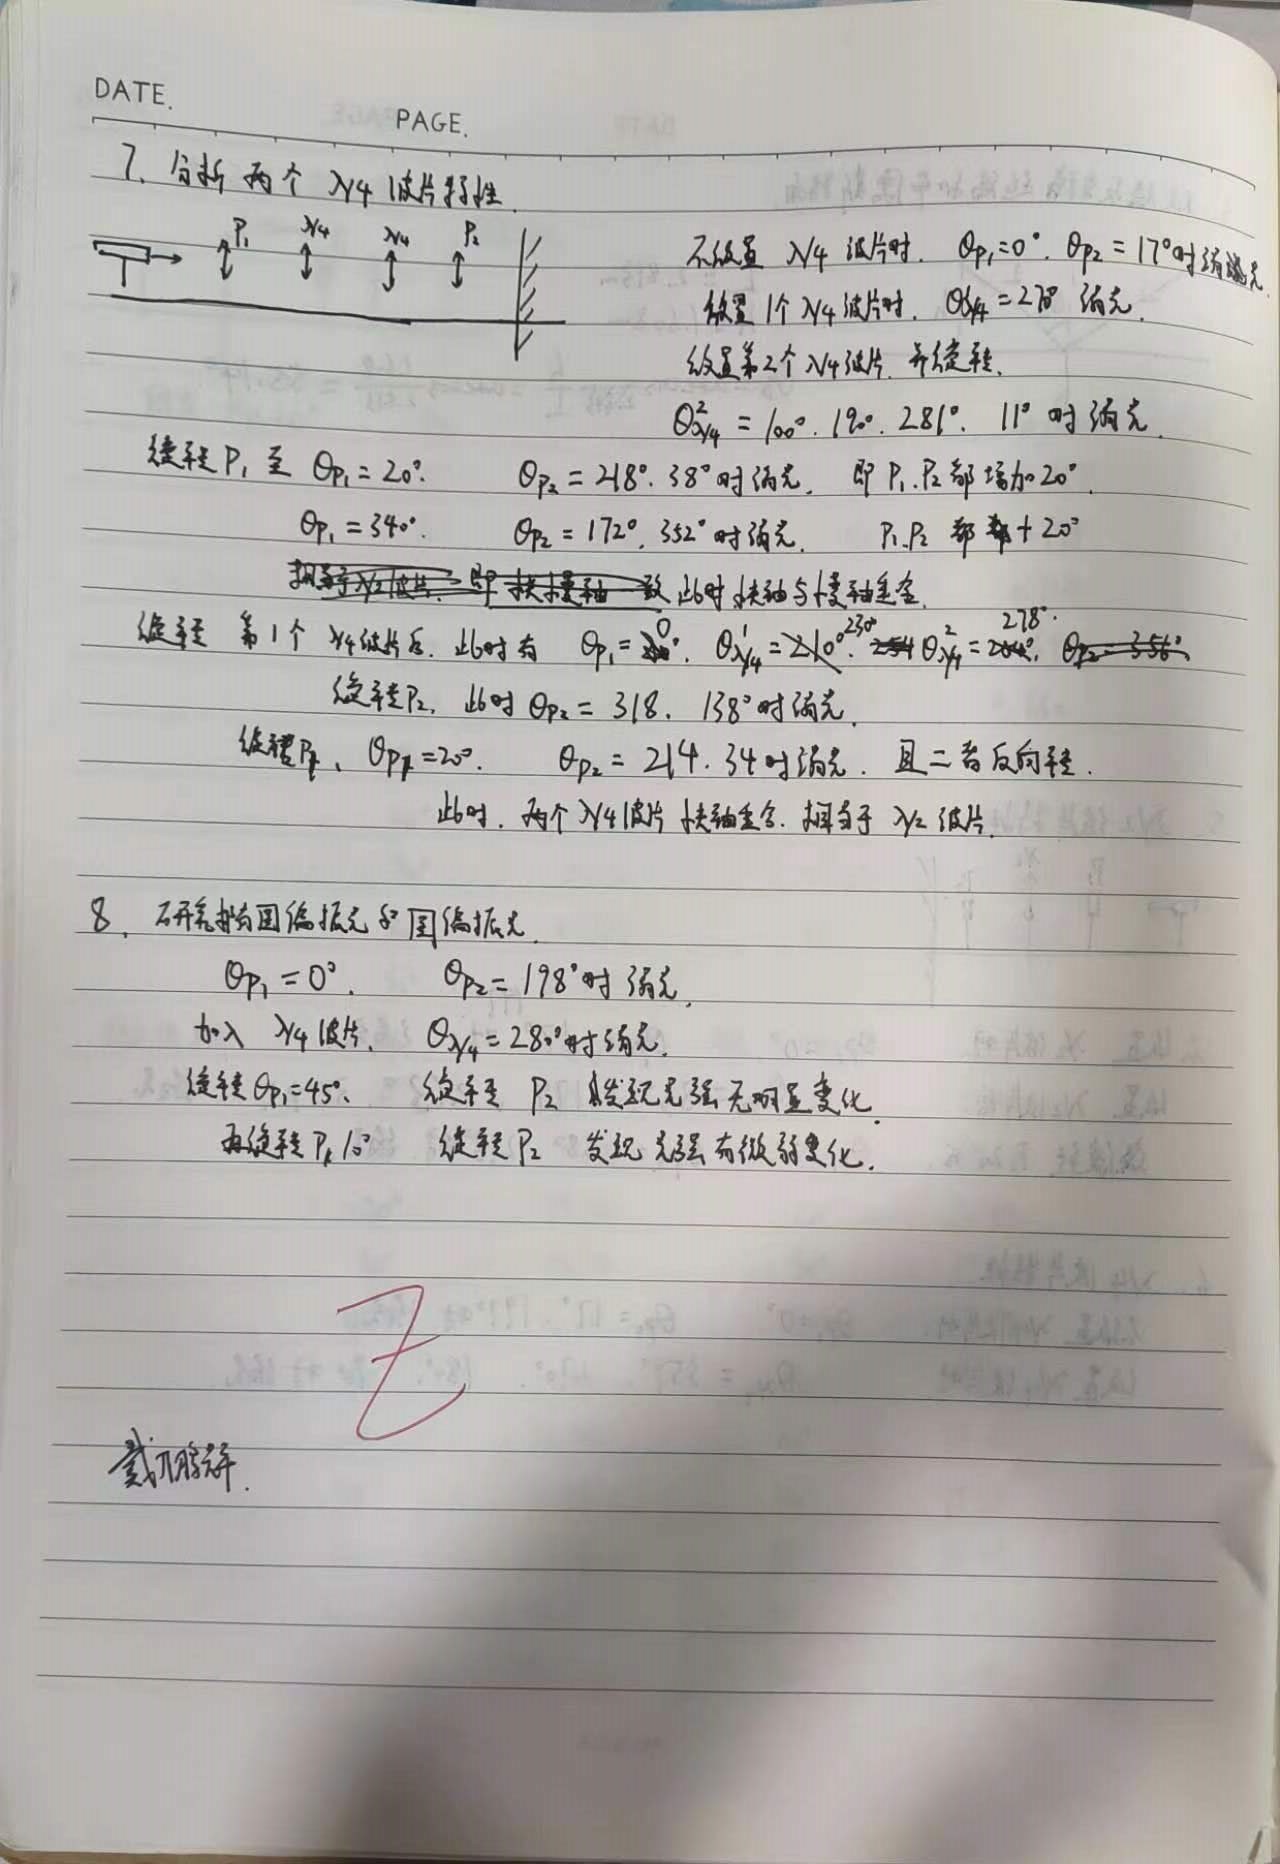 DATE.
PAGE.
7. 分析两个 λ/4 波片特性.
P₁ λ/4 λ/4 P₂
不放置 λ/4 波片时. θp₁=0°. θp₂=17°时消光
放置1个λ/4波片时. θλ/4=278° 消光.
放置第2个λ/4波片. 并旋转.
θ²λ/4=100°. 190. 281°. 11° 时消光.
旋转P₁至 θp₁=20°. θp₂=218°. 38°时消光. 即P₁.P₂都增加20°.
θp₁=340°. θp₂=172°. 352°时消光. P₁.P₂都+20°
此时快轴与慢轴重合.
旋转第1个λ/4波片后. 此时有 θp₁=0°. θ¹λ/4=230° θ²λ/4=278°.
旋转P₂. 此时θp₂=318. 138°时消光.
θp₁=20°. θp₂=214. 34时消光. 且二者反向转.
此时. 两个λ/4波片快轴重合. 相当于λ/2波片.
8. 研究椭圆偏振光和圆偏振光.
θp₁=0°. θp₂=198°时消光.
加入 λ/4波片. θλ/4=280°时消光.
旋转θp₁=45°. 旋转P₂ 发现光强无明显变化.
再旋转P₁ 10° 旋转P₂ 发现光强有微弱变化.